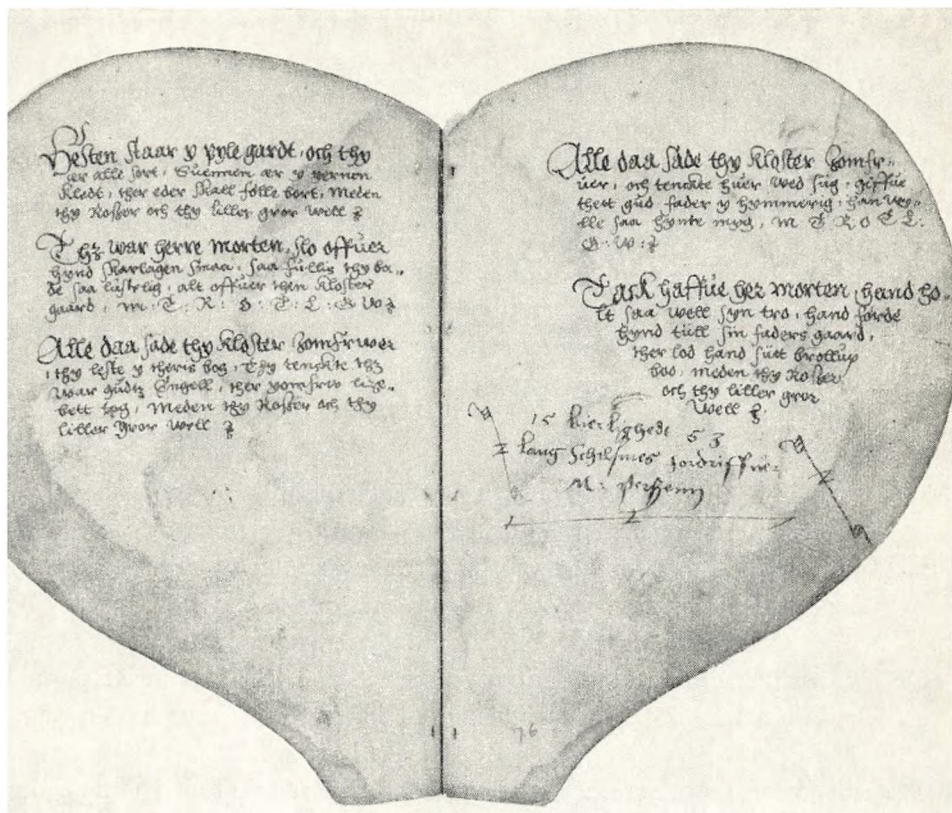 Hesten staar y pyle gardt, och thy
ær alle sort, Suennen ær y yernen
kledt, ther eder skall følle bort, Meden
thy Rosser och thy liller gror well
Thz war herre morten, slo offuer
hynd skarlagen smaa, saa füllig thy ba..
de saa lüstelig, alt offuer then kloster
gaard, m. T. R. O. T. L. G W
Alle daa sade thy kloster Jomfrwer
thy leste y theris bog, Thy tenckte thz
war gudtz Engell, ther yomfrw lize..
bett tog, Meden thy Rosser och thy
liller gror well
Alle daa sade thy kloster Jomfr..
üer, och tenckte hüer wed sug, giffüe
thett gud fader y hymmerig, han wy..
lle saa hynte myg, m T R O T L.
G. W.
Tack haffüe her morten, hand ho..
lt saa well syn tro, hand førde
hynd tüll sin faders gaard,
ther lod hand sütt brollüp
boo, meden thy Rosser
och thy liller gror
well
15 kierlighedt 53
lang fordriffuer
M:
76